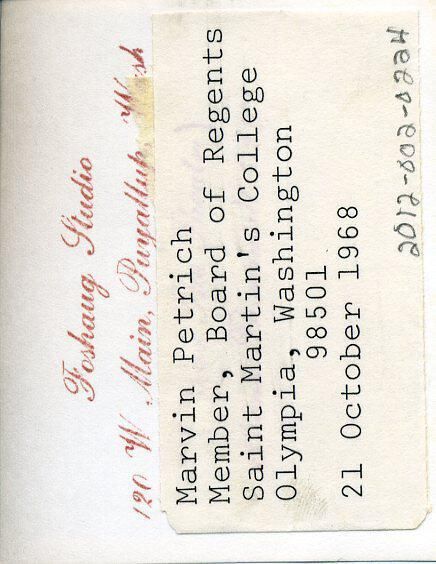 Foshaug Studio
120 W Main, Puyallup, Wash
Marvin Petrich
Member, Board of Regents
Saint Martin's College
Olympia, Washington
98501
21 October 1968
2012-002-0224